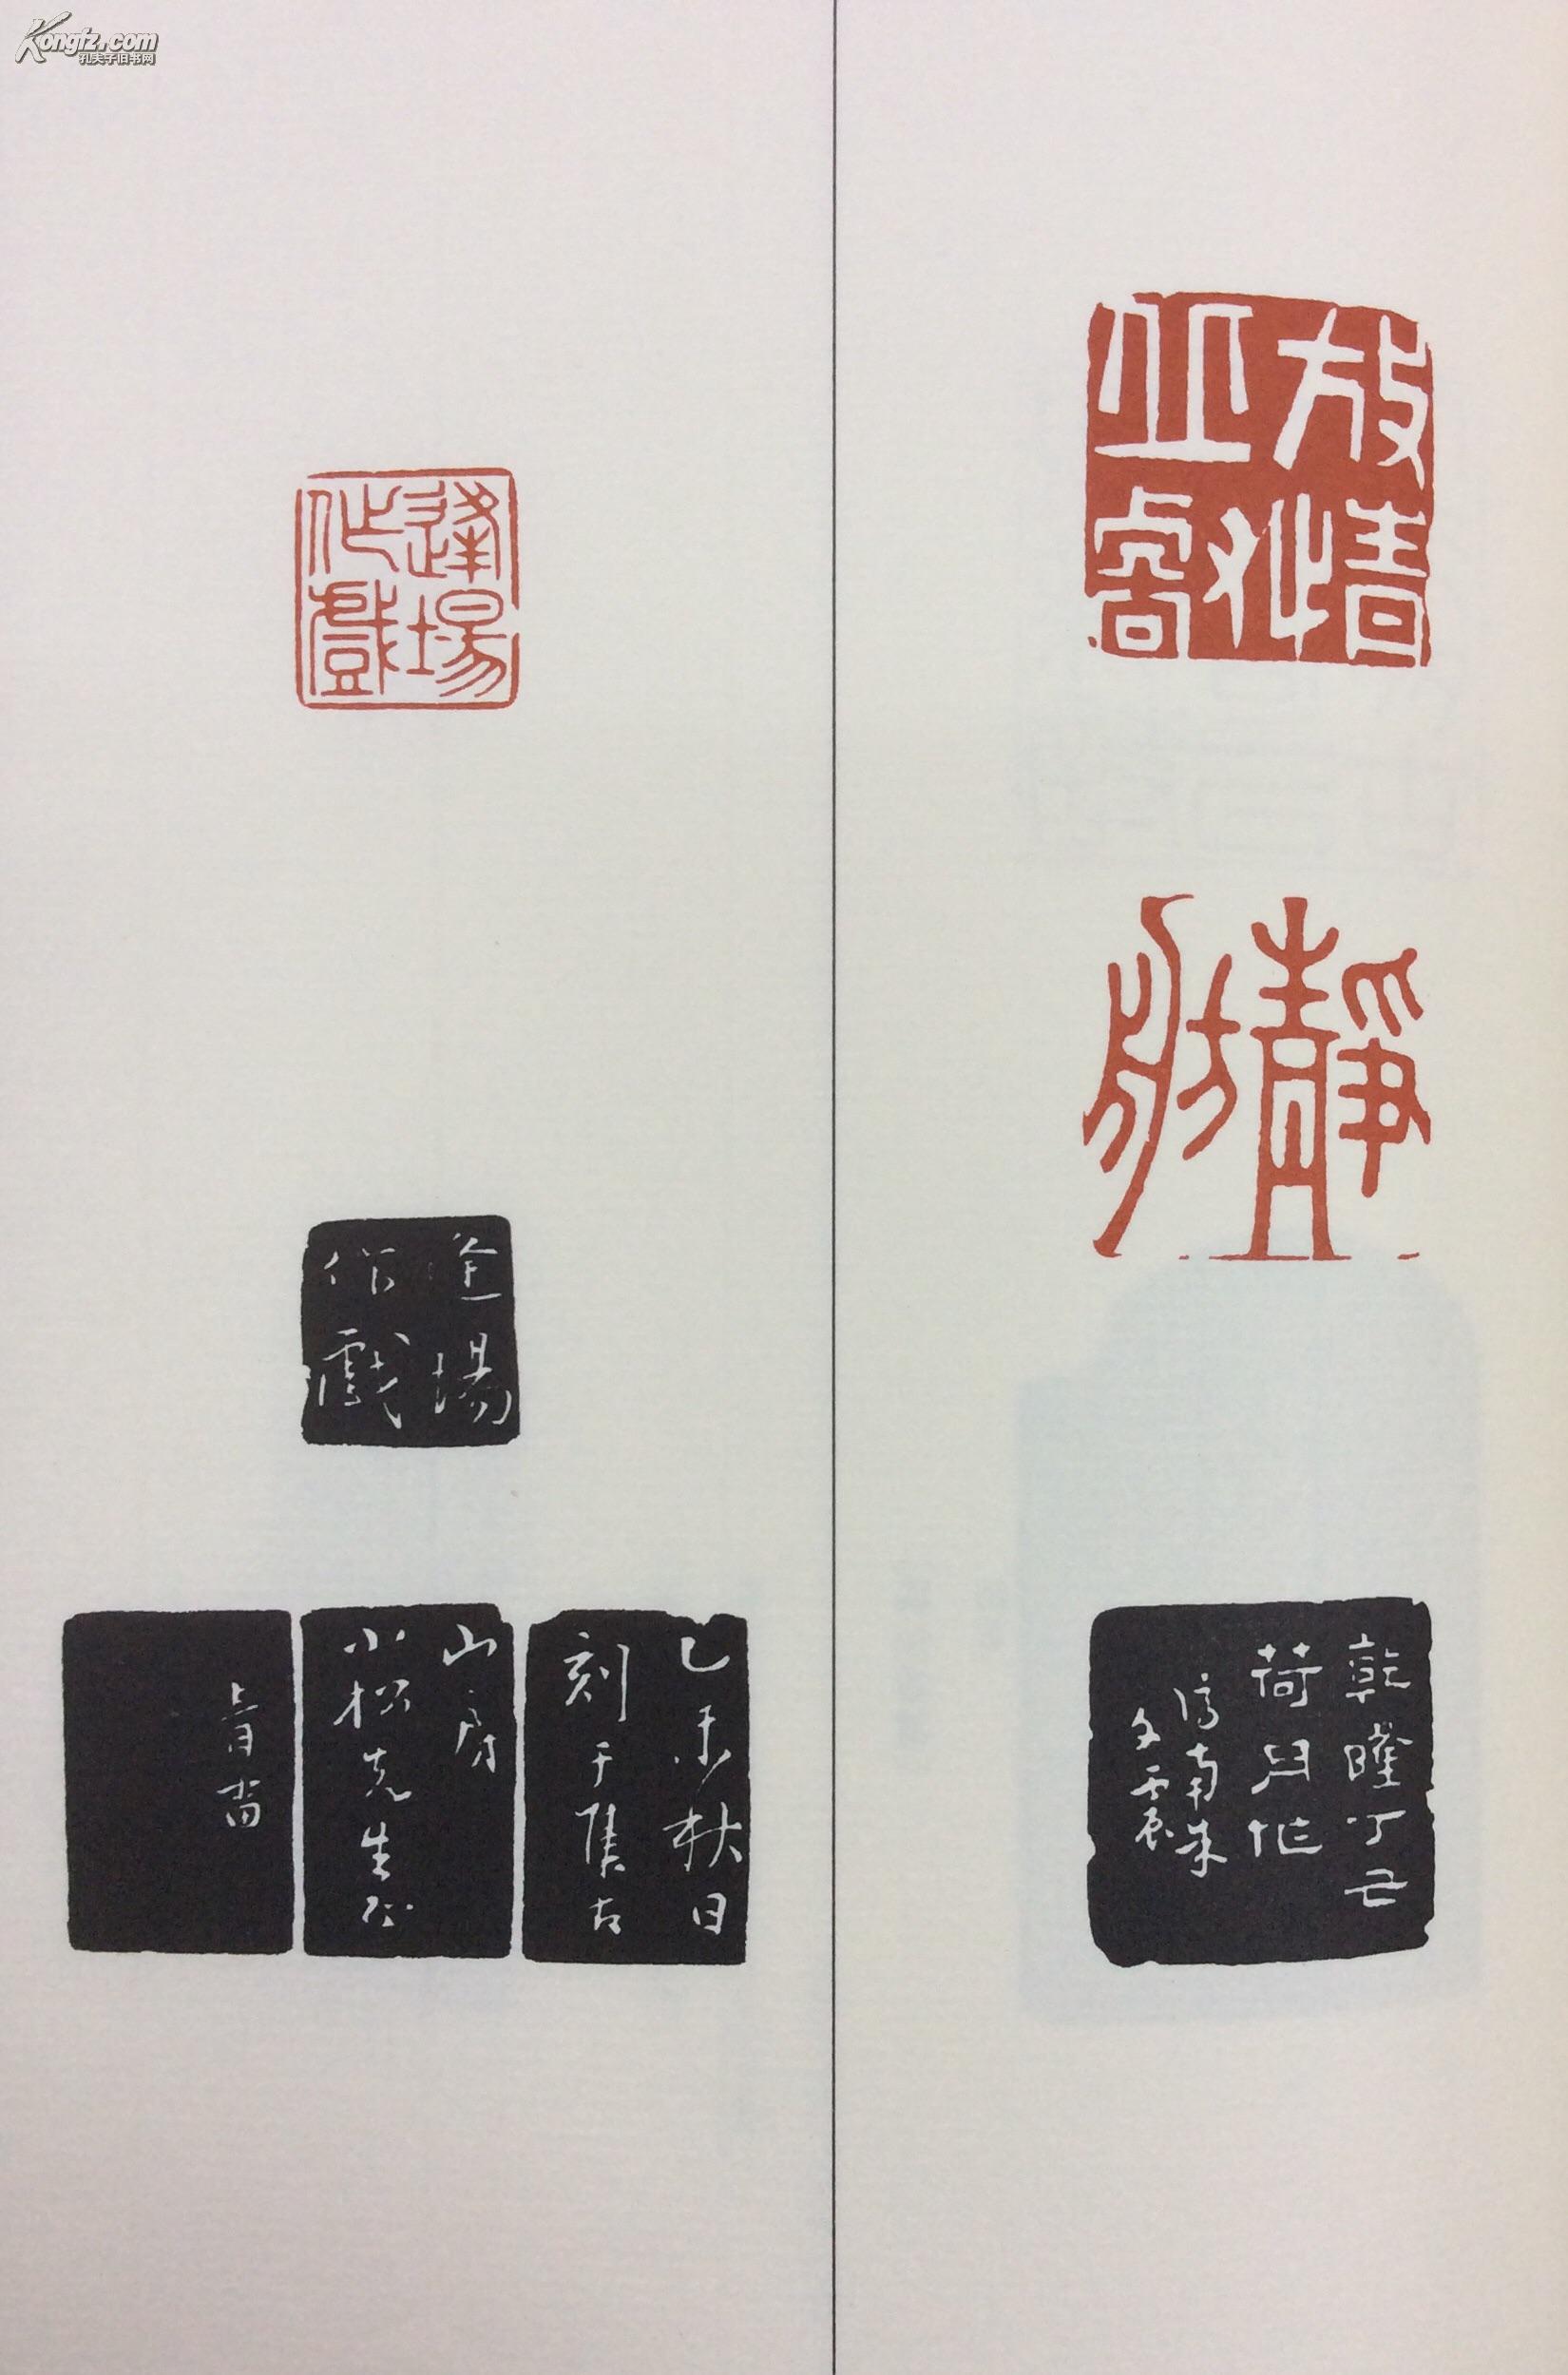 Kongfz.com
孔夫子旧书网
放情
丘壑
靜舫
乾隆丁丑
荷月作
濟南朱
文震
逢場
作戲
逢場
作戲
乙未秋日
刻于集古
山房
小松先生正